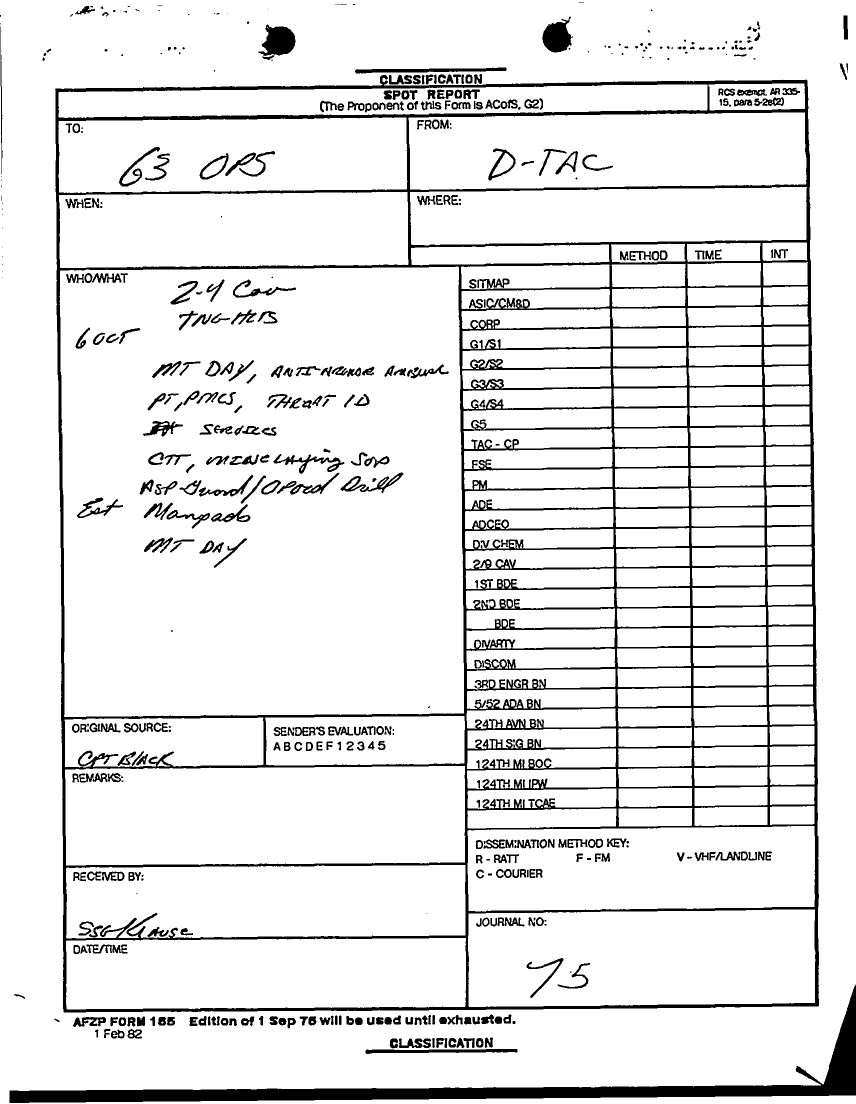 CLASSIFICATION
SPOT REPORT
(The Proponent of this Form is ACofS, G2)
RCS exempt. AR 335-
15, para 5-2e(2)
TO:
G3 OPS
FROM:
D-TAC
WHEN:
WHERE:
METHOD TIME INT
WHO/WHAT
2-4 Cav
TNG-
6 OCT
MT DAY, ANTI-ARMOR
PT, PMCS, THREAT ID
SERVICES
CTT, MINELAYING
ASP Guard/OPORD Drill
Est Manpads
MT DAY
SITMAP
ASIC/CM&D
CORP
G1/S1
G2/S2
G3/S3
G4/S4
G5
TAC - CP
FSE
PM
ADE
ADCEO
DIV CHEM
2/9 CAV
1ST BDE
2ND BDE
BDE
DIVARTY
DISCOM
3RD ENGR BN
5/52 ADA BN
24TH AVN BN
24TH SIG BN
124TH MI BOC
124TH MI IPW
124TH MI TCAE
ORIGINAL SOURCE:
CPT Black
SENDER'S EVALUATION:
A B C D E F 1 2 3 4 5
REMARKS:
DISSEMINATION METHOD KEY:
R - RATT F - FM V - VHF/LANDLINE
C - COURIER
RECEIVED BY:
SSG Krause
JOURNAL NO:
75
DATE/TIME
AFZP FORM 155 Edition of 1 Sep 76 will be used until exhausted.
1 Feb 82
CLASSIFICATION